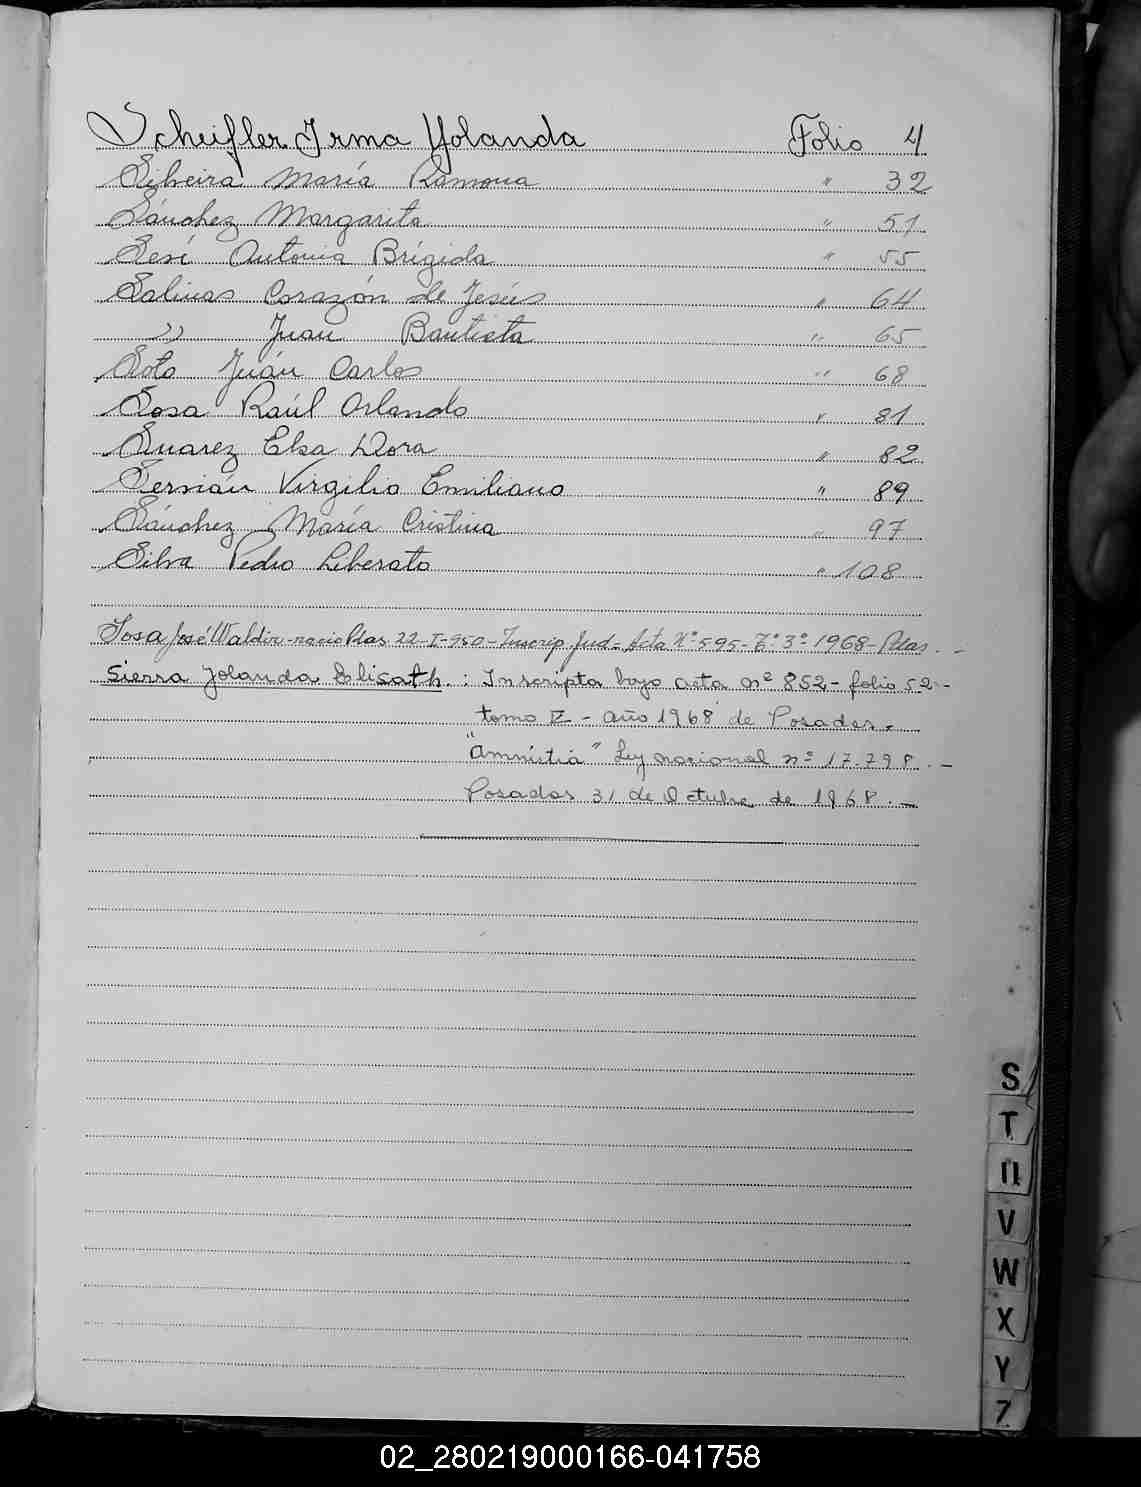 Scheifler Irma Yolanda Folio 4
Silveira María Ramona " 32
Sánchez Margarita " 51
Sesé Antonia Brígida " 55
Salinas Corazón de Jesús " 64
" Juan Bautista " 65
Soto Juán Carlos " 68
Sosa Raúl Orlando " 81
Suarez Elsa Dora " 82
Sernián Virgilio Emiliano " 89
Sánchez María Cristina " 97
Silva Pedro Liberato " 108
Sosa José Waldir - nacio Pdas 22-I-950 - Inscrip. Jud - Acta Nº 595 - Tº 3º 1968 - Pdas. -
Sierra Yolanda Elisath. : Inscripta bajo acta nº 852 - folio 52 -
tomo - año 1968 de Posadas -
"amnistia" Ley nacional nº 17.798. -
Posadas 31 de Octubre de 1968. -
S
T
U
V
W
X
Y
Z
02_280219000166-041758